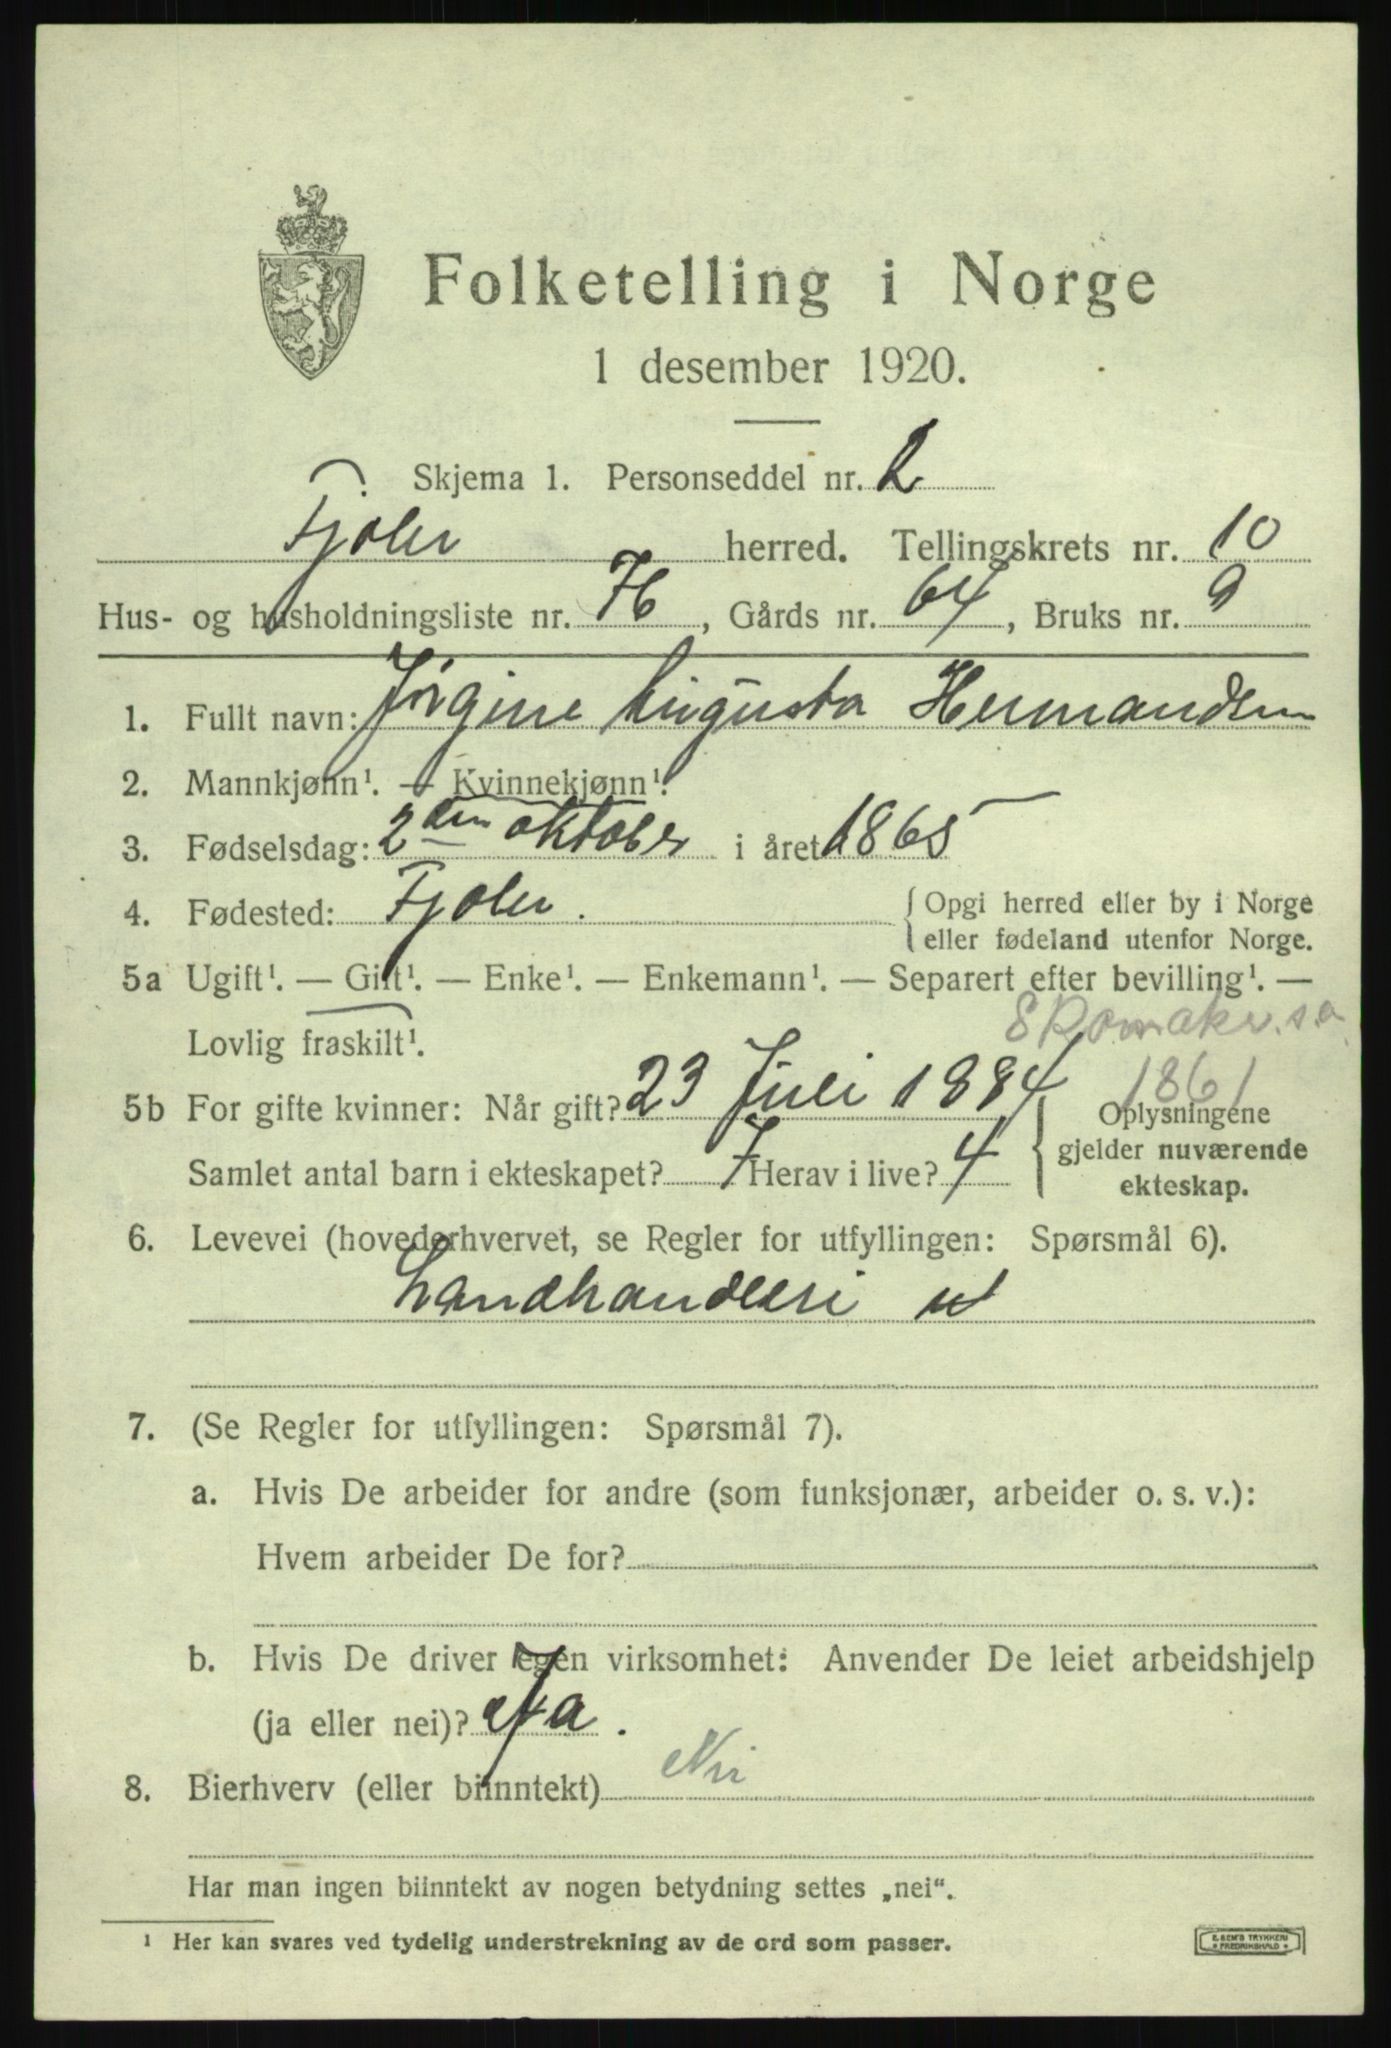 Folketelling i Norge
1 desember 1920.
Skjema 1. Personseddel nr. 2
Fjaler herred. Tellingskrets nr. 10
Hus- og husholdningsliste nr. 76, Gårds nr. 64, Bruks nr. 9
1. Fullt navn: Jörgine Augusta Hermandsen
2. Mannkjønn¹. — Kvinnekjønn¹.
3. Fødselsdag: 2den oktober i året 1865
4. Fødested: Fjaler. { Opgi herred eller by i Norge
eller fødeland utenfor Norge.
5a Ugift¹. — Gift¹. — Enke¹. — Enkemann¹. — Separert efter bevilling¹. —
Lovlig fraskilt¹.
1861
5b For gifte kvinner: Når gift? 23 Juli 1884 { Oplysningene
gjelder nuværende
Samlet antal barn i ekteskapet? 7 Herav i live? 4 ekteskap.
6. Levevei (hovederhvervet, se Regler for utfyllingen: Spørsmål 6).
Landhandleri
7. (Se Regler for utfyllingen: Spørsmål 7).
a. Hvis De arbeider for andre (som funksjonær, arbeider o. s. v.):
Hvem arbeider De for?
b. Hvis De driver egen virksomhet: Anvender De leiet arbeidshjelp
(ja eller nei)? Ja.
8. Bierhverv (eller biinntekt) Nei
Har man ingen biinntekt av nogen betydning settes „nei“.
¹ Her kan svares ved tydelig understrekning av de ord som passer.
E. SEM'S TRYKKERI
FREDRIKSHALD